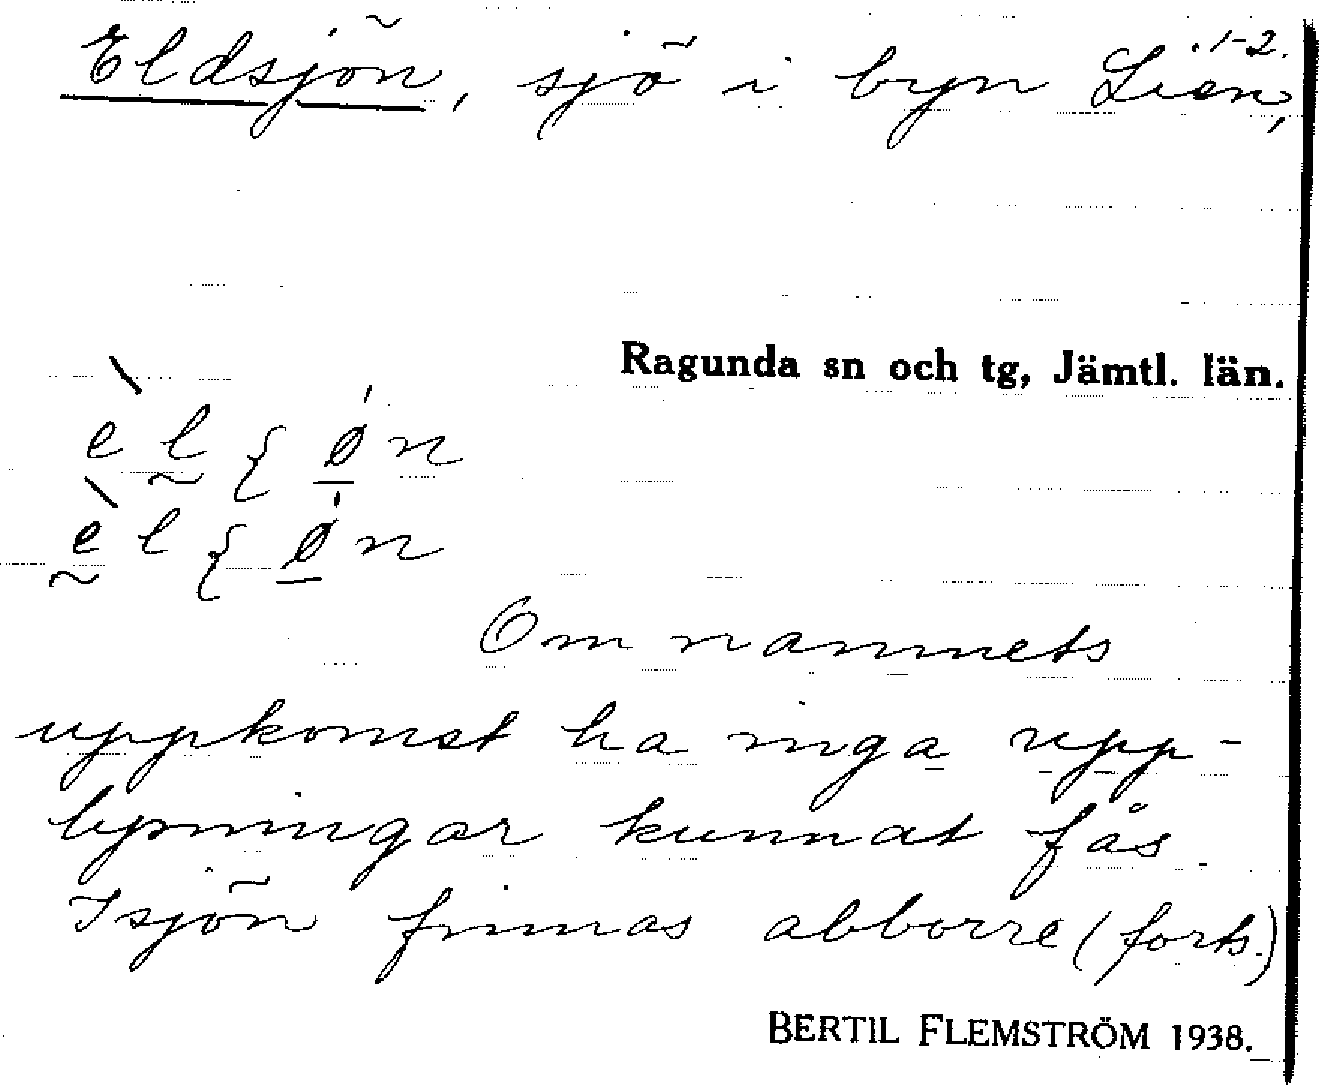 Eldsjön, sjö i byn Lien, 1-2.
Ragunda sn och tg, Jämtl. län.
Om namnets
uppkomst ha inga upp-
lysningar kunnat fås.
I sjön finnas abborre (forts.)
BERTIL FLEMSTRÖM 1938.